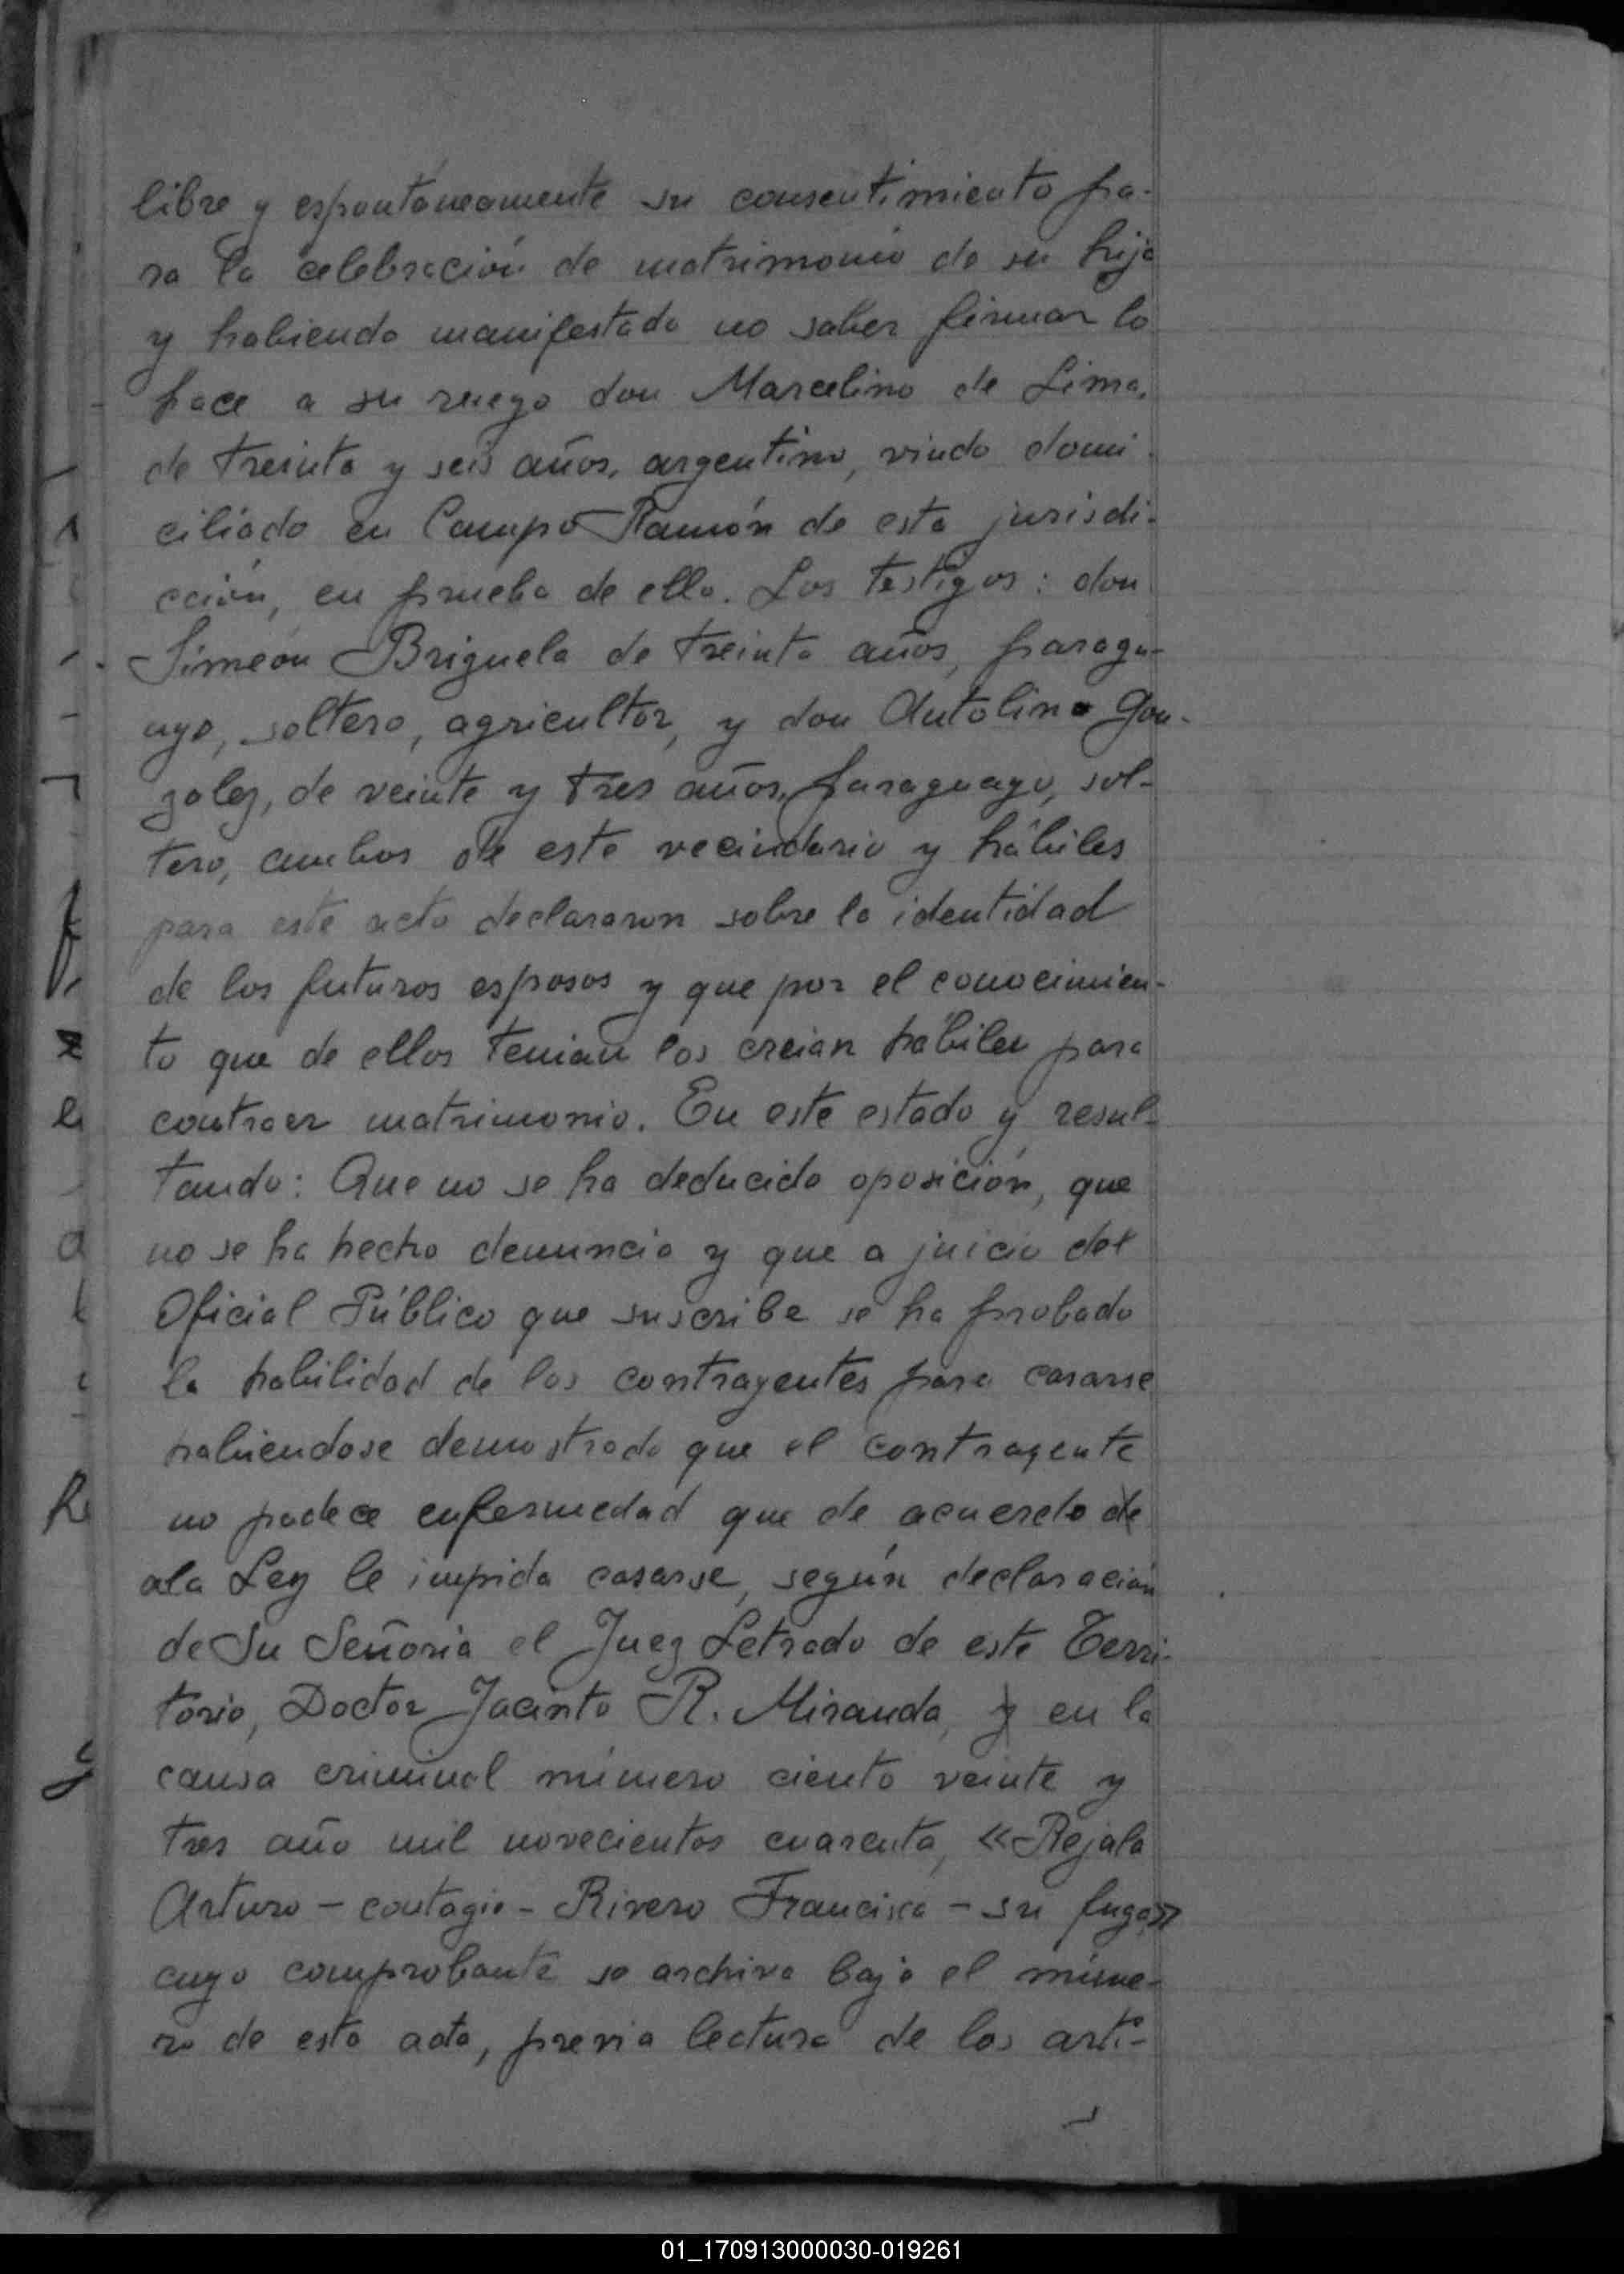 libre y espontáneamente su consentimiento pa-
ra la celebración de matrimonio de su hija
y habiendo manifestado no saber firmar lo
hace a su ruego don Marcelino de Lima,
de treinta y seis años, argentino, viudo domi-
ciliado en Campo Ramón de esta jurisdi-
cción, en prueba de ello. Los testigos: don
Simeón Briguela de treinta años, paragu-
ayo, soltero, agricultor, y don Antolino Gon-
zalez, de veinte y tres años, paraguayo, sol-
tero, ambos de este vecindario y hábiles
para este acto declararon sobre la identidad
de los futuros esposos y que por el conocimien-
to que de ellos tenian los creian hábiles para
contraer matrimonio. En este estado y resul-
tando: Que no se ha deducido oposición, que
no se ha hecho denuncia y que a juicio del
Oficial Público que suscribe se ha probado
la habilidad de los contrayentes para casarse
habiendose demostrado que el contrayente
no padece enfermedad que de acuerdo de
a la Ley le impida casarse, según declaración
de Su Señoria el Juez Letrado de este Terri-
torio, Doctor Jacinto R. Miranda, y en la
causa criminal número ciento veinte y
tres año mil novecientos cuarenta, «Rejala
Arturo - contagio - Rivero Francisca - su fuga»
cuyo comprobante se archiva bajo el núme-
ro de esta acta, previa lectura de los arti-
01_170913000030-019261